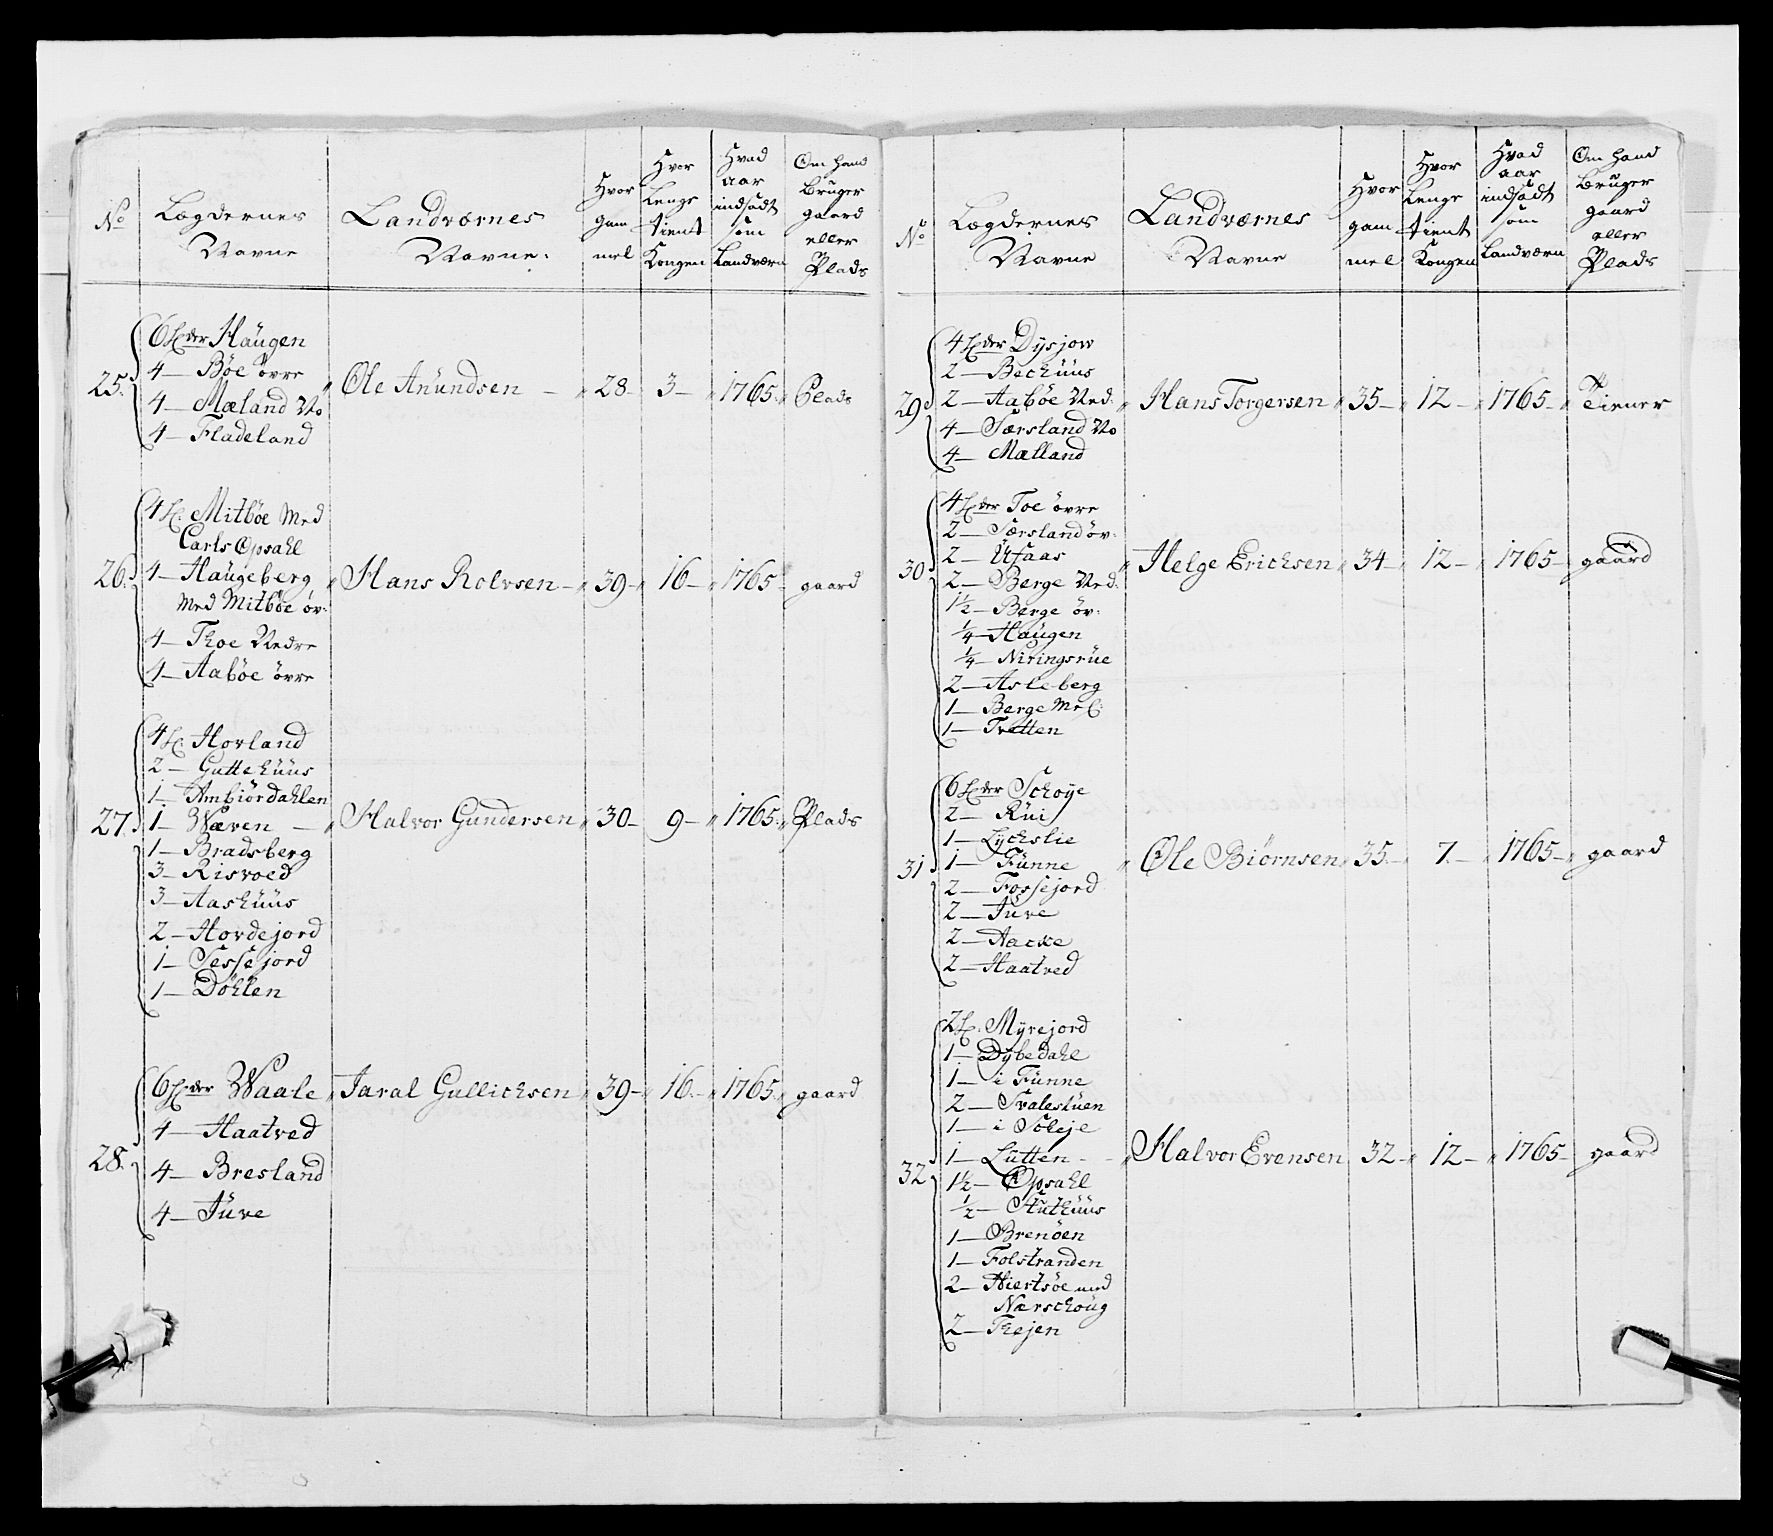 No
Lægdernes
Navne
Landværnes
Navne.
Hvor
gam
mel
Hvor
Lenge
tient
Kongen
Hvad
aar
indsadt
som
Landværn
Om hand
Bruger
gaard
eller
Plads
25.
6 L: der Haugen
4 — Bøe øvre
4 — Mæland No
4 — Fladeland
Ole Anundsen — 28. 3 — 1765. Plads
26.
4 L: Mitbøe Med
Carls Opsahl
4 — Haugeberg
Med Mitbøe øv:
4 — Thoe Nedre
4 — Aabøe øvre
Hans Rolvsen — 39 — 16 — 1765 gaard
27.
4 L: Hovland
2 — Guttehuus
1 — Ambiørdahlen
1 — Wæven —
1 — Bradsberg
3 — Risvoed
3 — Aashuus
2 — Hovdejord
1 — Sessejord
1 — Døhlen
Halvor Gundersen 30 — 9 — 1765. Plads
28.
6 L: der Waale
4 — Haatved
4 — Bresland
4 — Juve
Jaral Gullichsen 39 — 16. — 1765. gaard
No
Lægdernes
Navne
Landværnes
Navne
Hvor
gam
mel
Hvor
Lenge
tient
Kongen
Hvad
aar
indsadt
som
Landværn
Om hand
Bruger
gaard
eller
Plads
29
4 L: der Dysjow
2 — Bechuus
2 — Aabøe Ned:
4 — Særsland No
4 — Mælland
Hans Torgersen 35 — 12 — 1765 — Tiener
30
4 L: der Toe øvre
2 — Særsland øv:
2 — Ufaas
2 — Berge Ned:
1½ — Berge øv:
¼ — Haugen
¼ — Niringsrue
2 — Asleberg
1 — Berge
1 — Tvetten
Helge Erichsen 34 — 12 — 1765 — gaard
31
6 L: der Schoye
2 — Rui
1 — Lychslie
1 — Funne
2 — Fossejord
2 — Juve
2 — Aacke
2 — Haatved
Ole Biørnsen 35. — 7. — 1765 — gaard
32
2 L: Myrejord
1 — Dybedahl
1 — i Funne
2 — Svalestuen
1 — i Søleje
1 — Lutten —
1½ — Opsahl
½ — Stuthuus
1 — Brenøen
1 — Folstranden
2 — Hiertsøe med
Nærschoug
2 — Thejen
Halvor Evensen 32 — 12 — 1765 — gaard